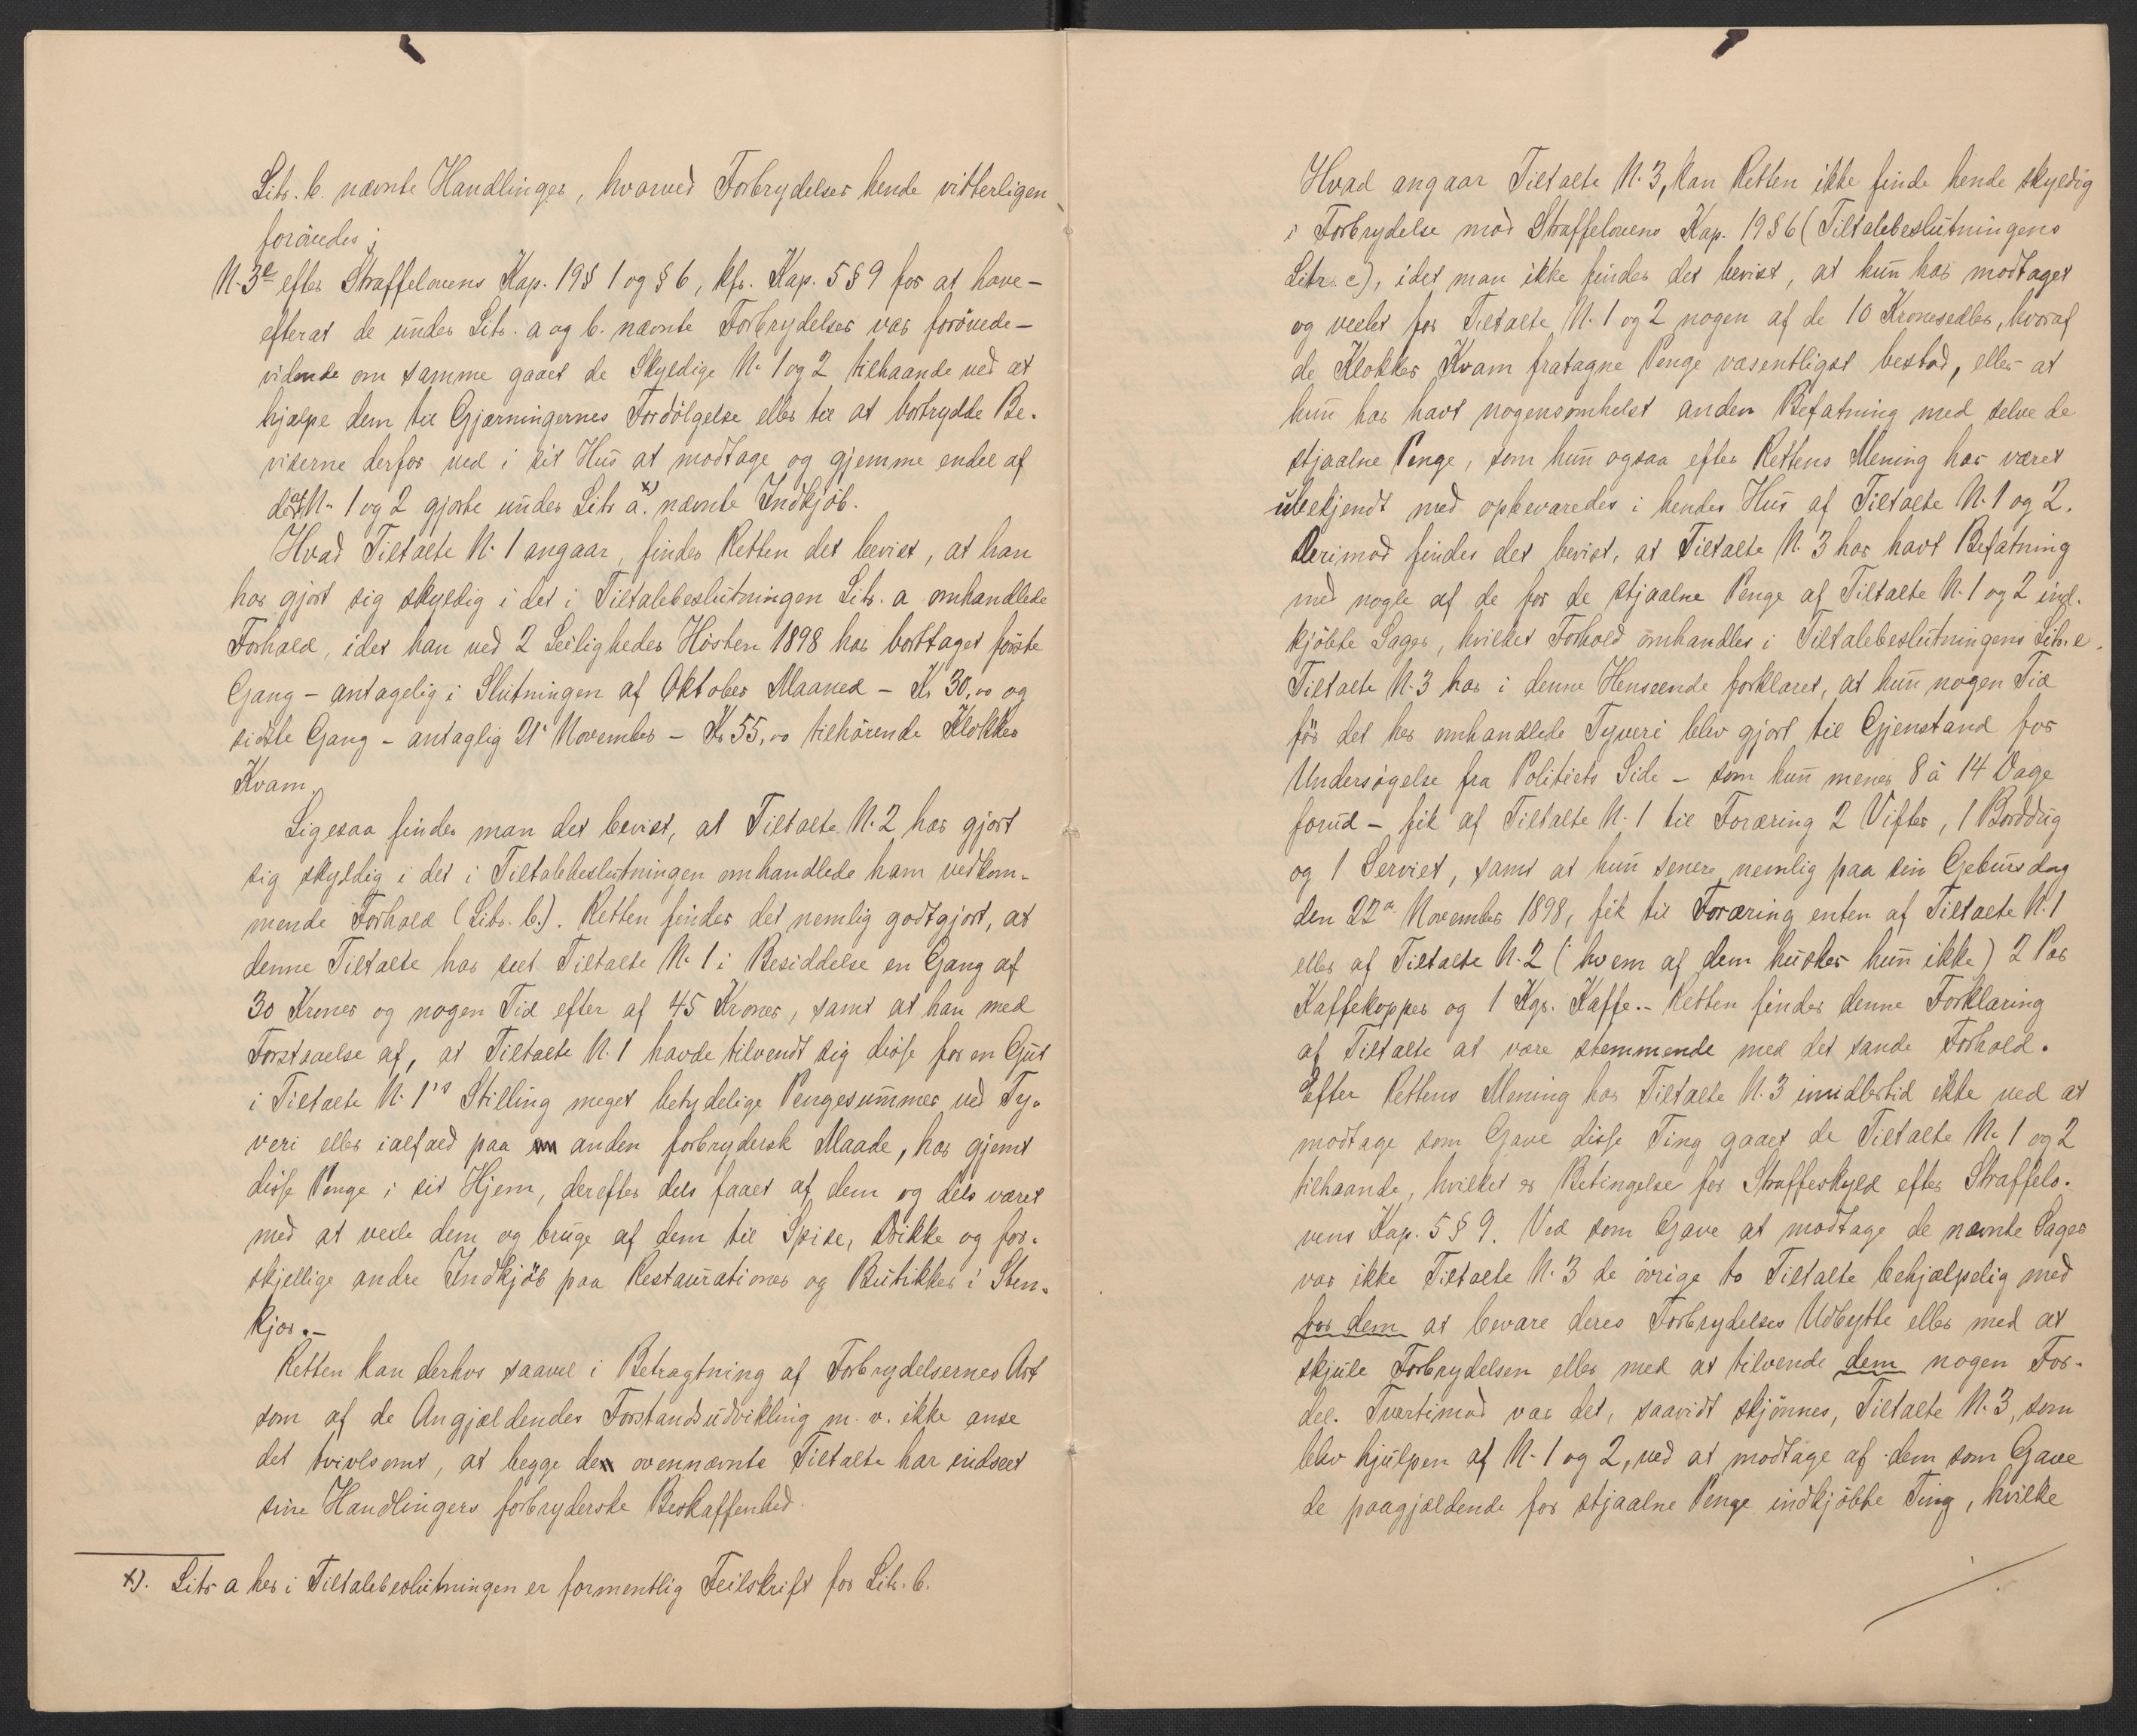 Litr. b. nævnte Handlinger, hvorved Forbrydelser hende vitterligen
forövedes;
N. 3 e efter Straffelovens Kap. 19 § 1 og § 6, kfr. Kap. 5 § 9 for at have –
efterat de under Litr. a og b. nævnte Forbrydelser var forövede –
vidende om samme gaaet de Skyldige N. 1 og 2 tilhaande ved at
hjælpe dem til Gjærningernes Fordölgelse eller til at bortrydde Be-
viserne derfor ved i sit Hus at modtage og gjemme endel af
de af N. 1 og 2 gjorte under Litr a. x) nævnte Indkjöb.
Hvad Tiltalte N. 1 angaar, finder Retten det bevist, at han
har gjort sig skyldig i det i Tiltalebeslutningen Litr. a omhandlede
Forhold, idet han ved 2 Leiligheder Hösten 1898 har borttaget förste
Gang – antagelig i Slutningen af Oktober Maaned – Kr 30,00 og
sidste Gang – antaglig 21' November – Kr 55,00 tilhörende Klokker
Kvam.
Ligesaa finder man det bevist, at Tiltalte N. 2 har gjort
sig skyldig i det i Tiltalebeslutningen omhandlede ham vedkom-
mende Forhold (Litr. b.). Retten finder det nemlig godtgjort, at
denne Tiltalte har seet Tiltalte N. 1 i Besiddelse en Gang af
30 Kroner og nogen Tid efter af 45 Kroner, samt at han med
Forstaaelse af, at Tiltalte N. 1 havde tilvendt sig disse for en Gut
i Tiltalte N. 1's Stilling meget betydelige Pengesummer ved Ty-
veri eller ialfald paa en anden forbrydersk Maade, har gjemt
disse Penge i sit Hjem, derefter dels faaet af dem og dels været
med at vexle dem og bruge af dem til Spise, Drikke og for-
skjellige andre Indkjöb paa Restaurationer og Butikker i Sten-
kjær. –
Retten kan derhos saavel i Betragtning af Forbrydelsernes Art
som af de Angjældendes Forstandsudvikling m. v. ikke anse
det tvivlsomt, at begge de ovennævnte Tiltalte har indseet
sine Handlingers forbryderske Beskaffenhed.
x). Litr a her i Tiltalebeslutningen er formentlig Feilskrift for Litr. b.
Hvad angaar Tiltalte N. 3, kan Retten ikke finde hende skyldig
i Forbrydelse mod Straffelovens Kap. 19 § 6 (Tiltalebeslutningens
Litr. c), idet man ikke finder det bevist, at hun har modtaget
og vexlet for Tiltalte N. 1 og 2 nogen af de 10 Kronesedler, hvoraf
de Klokker Kvam fratagne Penge væsentligst bestod, eller at
hun har havt nogensomhelst anden Befatning med selve de
stjaalne Penge, som hun ogsaa efter Rettens Mening har været
ubekjendt med opbevaredes i hendes Hus af Tiltalte N. 1 og 2.
Derimod findes det bevist, at Tiltalte N. 3 har havt Befatning
med nogle af de for de stjaalne Penge af Tiltalte N. 1 og 2 ind-
kjöbte Sager, hvilket Forhold omhandles i Tiltalebeslutningens Litr. e.
Tiltalte N. 3 har i denne Henseende forklaret, at hun nogen Tid
för det her omhandlede Tyveri blev gjort til Gjenstand for
Undersögelse fra Politiets Side – som hun mener 8 à 14 Dage
forud – fik af Tiltalte N. 1 til Foræring 2 Vifter, 1 Borddug
og 1 Serviet, samt at hun senere, nemlig paa sin Geburtsdag
den 22de November 1898, fik til Foræring enten af Tiltalte N. 1
eller af Tiltalte N. 2 (hvem af dem husker hun ikke) 2 Par
Kaffekopper og 1 Kgr. Kaffe. – Retten finder denne Forklaring
af Tiltalte at være stemmende med det sande Forhold.
Efter Rettens Mening har Tiltalte N. 3 imidlertid ikke ved at
modtage som Gave disse Ting gaaet de Tiltalte N. 1 og 2
tilhaande, hvilket er Betingelse for Straffeskyld efter Straffelo-
vens Kap. 5 § 9. Ved som Gave at modtage de nævnte Sager
var ikke Tiltalte N. 3 de övrige to Tiltalte behjælpelig med
for dem at bevare deres Forbrydelses Udbytte eller med at
skjule Forbrydelsen eller med at tilvende dem nogen For-
del. Tvertimod var det, saavidt skjönnes, Tiltalte N. 3, som
blev hjulpen af N. 1 og 2, ved at modtage af dem som Gave
de paagjældende for stjaalne Penge indkjöbte Ting, hvilke